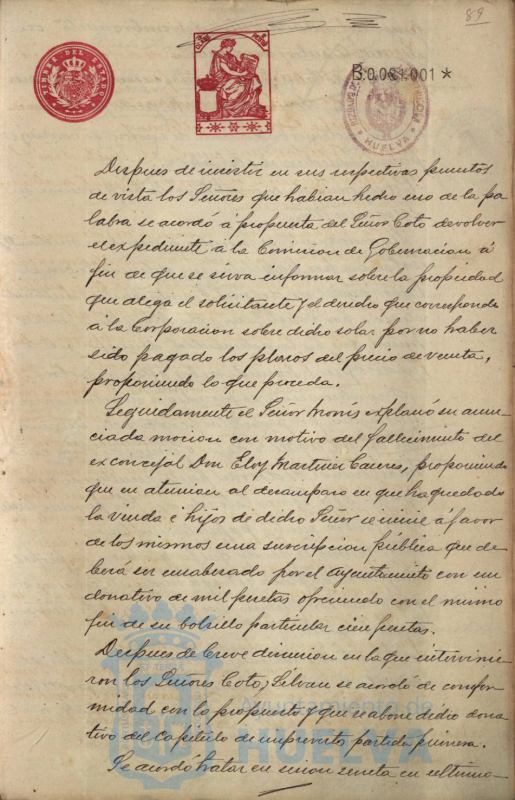 89
TIMBRE DEL ESTADO
B.0.081.001 *
HUELVA
Despues de insistir en sus respectivos puntos
de vista los Señores que habian hecho uso de la pa
labra se acordó á propuesta del Señor Coto devolver
el expediente á la Comision de Gobernacion á
fin de que se sirva informar sobre la propiedad
que alega el solicitante y el derecho que corresponde
á la Corporacion sobre dicho solar por no haber
sido pagado los plazos del precio de venta,
proponiendo lo que proceda.
Seguidamente el Señor Monís explanó su anun
ciada mocion con motivo del fallecimiento del
exconcejal Don Eloy Martinez Caceres, proponiendo
que en atencion al desamparo en que ha quedado
la viuda e hijos de dicho Señor se inicie á favor
de los mismos una suscripcion pública que de
berá ser encabezada por el Ayuntamiento con un
donativo de mil pesetas ofreciendo con el mismo
fin de su bolsillo particular cien pesetas.
Despues de breve discusion en la que intervinie
ron los Señores Coto y Silvan se acordó de confor
midad con lo propuesto y que se abone dicho dona
tivo del Capítulo de imprevistos partida primera.
Se acordó tratar en sesion secreta en ultimo
Ayuntamiento de
HUELVA